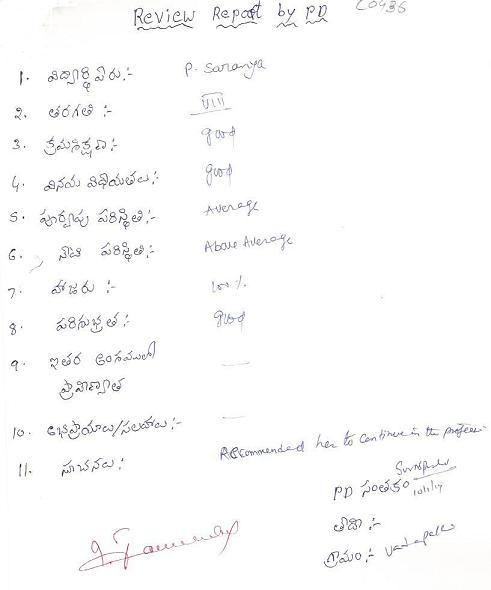 Review Report by PD C0936
1. విద్యార్థి పేరు:- P. Saranya
2. తరగతి :- VIII
3. క్రమశిక్షణ:- good
4. వినయ విధేయతలు:- good
5. పూర్వపు పరిస్థితి:- Average
6. నేటి పరిస్థితి:- Above Average
7. హాజరు :- 100%
8. పరిశుభ్రత :- good
9. ఇతర అంశములలో —
ప్రావిణ్యత
10. అభిప్రాయాలు/సలహాలు:- —
11. సూచనలు:- Recommended her to continue in the
PD సంతకం
తేది :-
గ్రామం:-